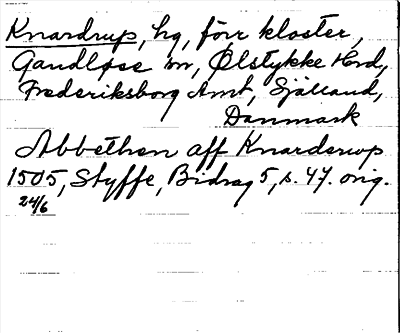 Knardrup, hg, förr kloster,
Gandløse sn, Ølstykke Hrd,
Frederiksborg Amt, Själland,
Danmark
Abbethen aff Knarderwp
1505, Styffe, Bidrag 5, s. 47. orig.
24/6